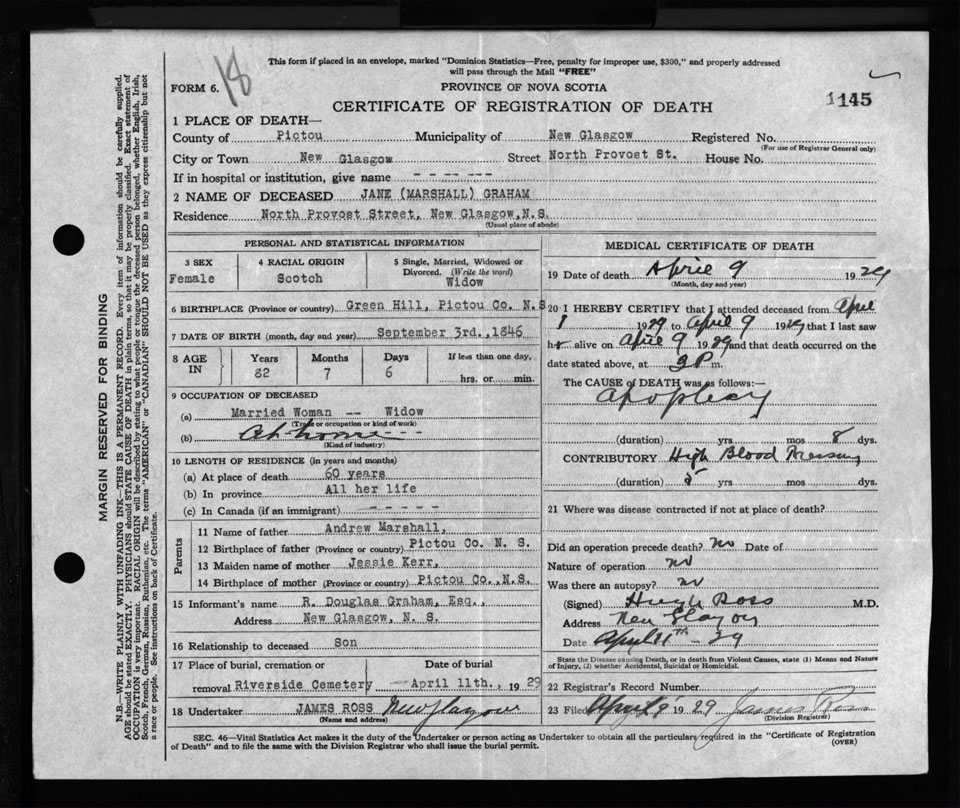 This form if placed in an envelope, marked "Dominion Statistics—Free, penalty for improper use, $300," and properly addressed
will pass through the Mail "FREE"
FORM 6. 18
PROVINCE OF NOVA SCOTIA
CERTIFICATE OF REGISTRATION OF DEATH
1145
1 PLACE OF DEATH—
County of Pictou Municipality of New Glasgow Registered No.
(For use of Registrar General only)
City or Town New Glasgow Street North Provost St. House No.
If in hospital or institution, give name - - -- ---
2 NAME OF DECEASED JANE (MARSHALL) GRAHAM
Residence North Provost Street, New Glasgow,N.S.
(Usual place of abode)
PERSONAL AND STATISTICAL INFORMATION
3 SEX 4 RACIAL ORIGIN 5 Single, Married, Widowed or
Divorced. (Write the word)
Female Scotch Widow
6 BIRTHPLACE (Province or country) Green Hill, Pictou Co. N.S
7 DATE OF BIRTH (month, day and year) September 3rd.,1846
8 AGE IN Years Months Days If less than one day,
82 7 6 hrs. or min.
9 OCCUPATION OF DECEASED
(a) Married Woman -- Widow
(Trade or occupation or kind of work)
(b) At home - - -
(Kind of industry)
10 LENGTH OF RESIDENCE (in years and months)
(a) At place of death 60 years
(b) In province All her life
(c) In Canada (if an immigrant) - - - - -
Parents
11 Name of father Andrew Marshall,
12 Birthplace of father (Province or country) Pictou Co. N. S.
13 Maiden name of mother Jessie Kerr,
14 Birthplace of mother (Province or country) Pictou Co.,N.S.
15 Informant's name R. Douglas Graham, Esq.,
Address New Glasgow, N. S.
16 Relationship to deceased Son
17 Place of burial, cremation or Date of burial
removal Riverside Cemetery — April 11th., 1929
18 Undertaker JAMES ROSS New Glasgow
(Name and address)
MEDICAL CERTIFICATE OF DEATH
19 Date of death April 9 1929
(Month, day and year)
20 I HEREBY CERTIFY that I attended deceased from April
1 1929 to April 9 1929, that I last saw
her alive on April 9 1929 and that death occurred on the
date stated above, at 3 P m.
The CAUSE OF DEATH was as follows:—
Apoplexy
(duration) yrs mos 8 dys.
CONTRIBUTORY High Blood Pressure
(duration) 5 yrs mos dys.
21 Where was disease contracted if not at place of death?
Did an operation precede death? No Date of
Nature of operation no
Was there an autopsy? no
(Signed) Hugh Ross M.D.
Address New Glasgow
Date April 11th - 29
State the Disease causing Death, or in death from Violent Causes, state (1) Means and Nature
of Injury, (2) whether Accidental, Suicidal or Homicidal.
22 Registrar's Record Number
23 Filed April 1929 James Ross
(Division Registrar)
SEC. 46—Vital Statistics Act makes it the duty of the Undertaker or person acting as Undertaker to obtain all the particulars required in the "Certificate of Registration
of Death" and to file the same with the Division Registrar who shall issue the burial permit. (OVER)
MARGIN RESERVED FOR BINDING
N.B.—WRITE PLAINLY WITH UNFADING INK—THIS IS A PERMANENT RECORD. Every item of information should be carefully supplied.
AGE should be stated EXACTLY. PHYSICIANS should STATE CAUSE OF DEATH in plain terms, so that it may be properly classified. Exact statement of
OCCUPATION is very important. RACIAL ORIGIN will be described by stating to what people or tongue the deceased person belonged, whether English, Irish,
Scotch, French, German, Russian, Ruthenian, etc. The terms "AMERICAN" or "CANADIAN" SHOULD NOT BE USED as they express citizenship but not
a race or people. See instructions on back of Certificate.